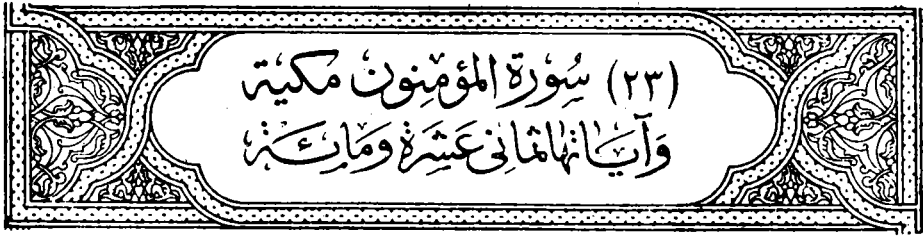 (٢٣) سُورَة المؤمِنون مكية
وَآيَاتها ثمانى عَشرَة ومَائة